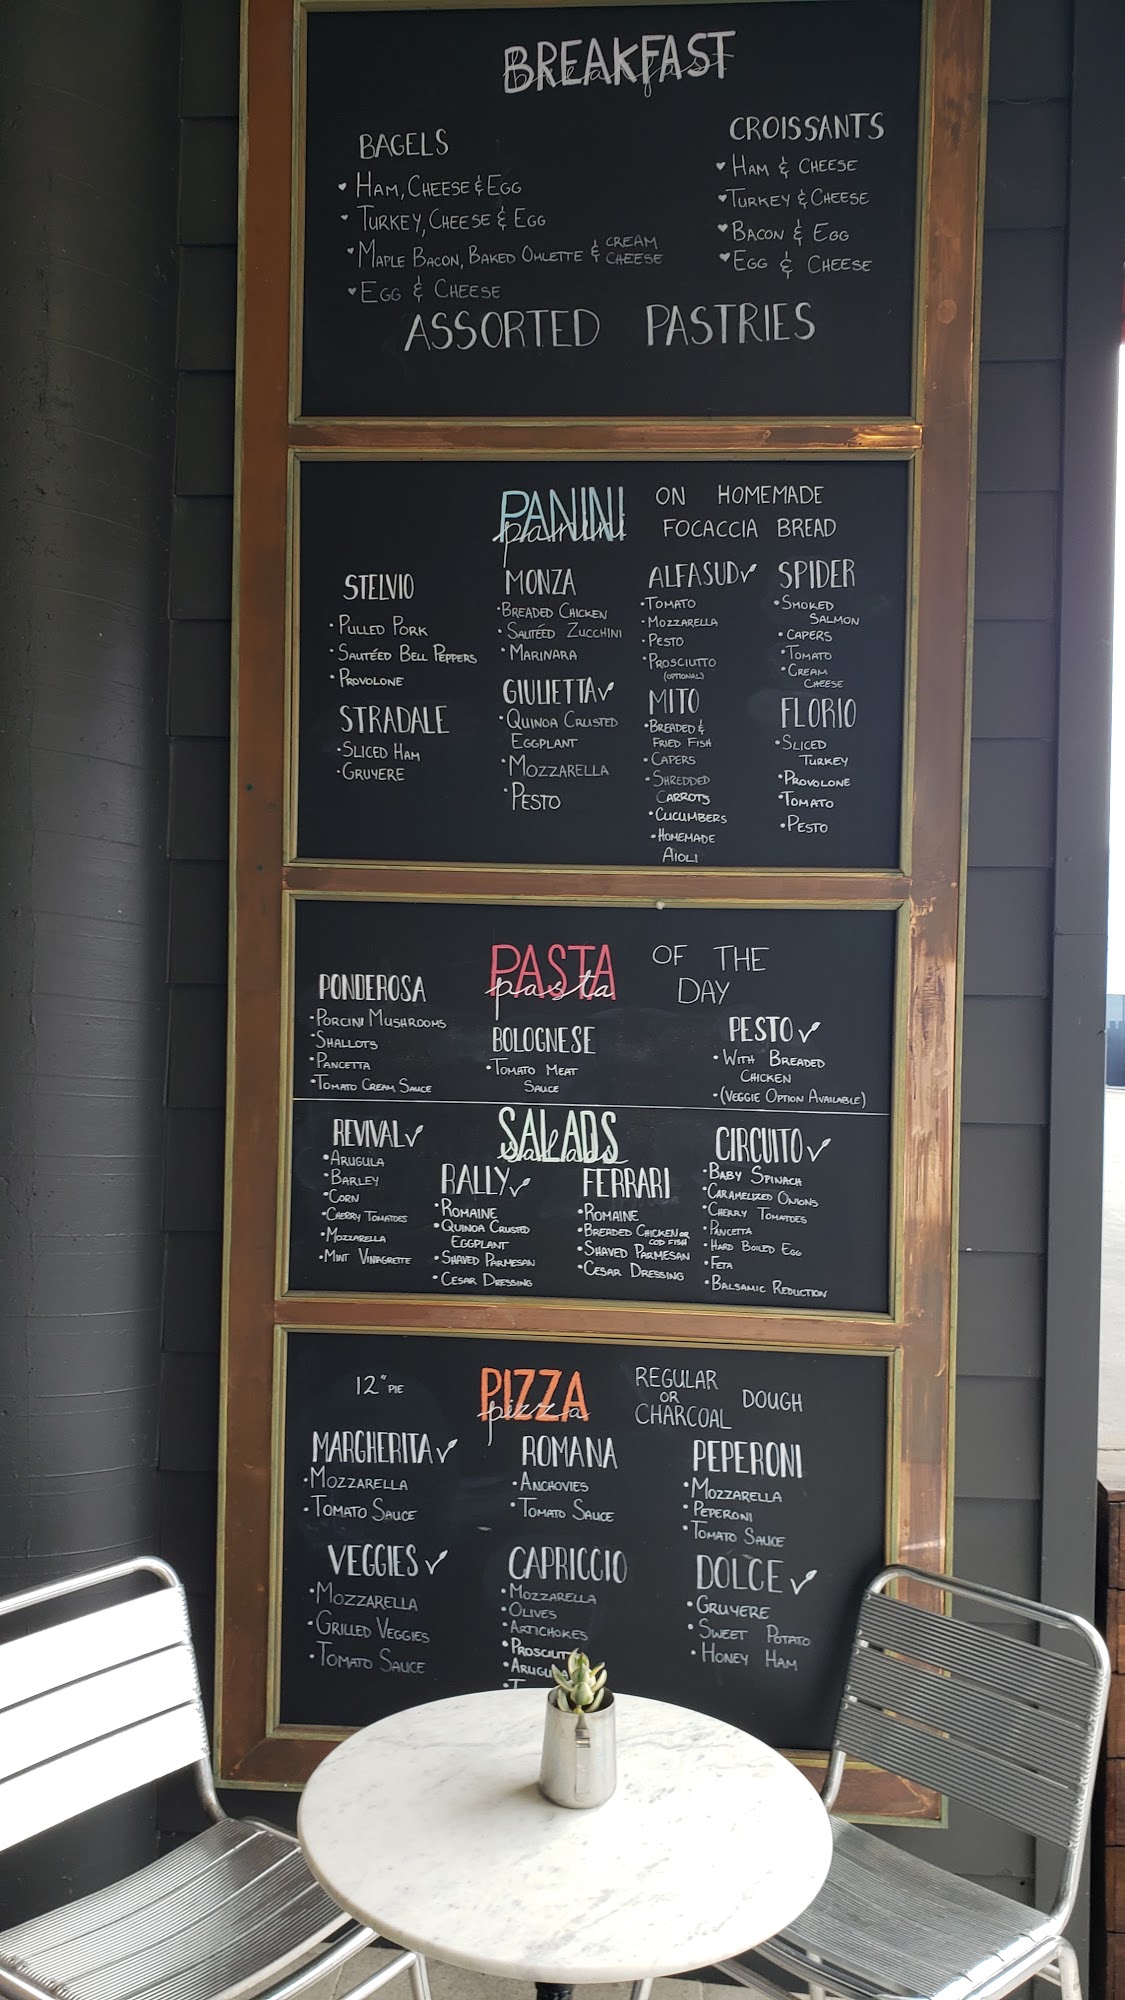 BREAKFAST
breakfast
BAGELS
HAM, CHEESE & EGG
TURKEY, CHEESE & EGG
MAPLE BACON, BAKED OMLETTE & CREAM CHEESE
EGG & CHEESE
CROISSANTS
HAM & CHEESE
TURKEY & CHEESE
BACON & EGG
EGG & CHEESE
ASSORTED PASTRIES
PANINI
panini
ON HOMEMADE
FOCACCIA BREAD
STELVIO
• PULLED PORK
• SAUTÉED BELL PEPPERS
• PROVOLONE
STRADALE
• SLICED HAM
• GRUYERE
MONZA
• BREADED CHICKEN
• SAUTÉED ZUCCHINI
• MARINARA
GIULIETTA
• QUINOA CRUSTED
EGGPLANT
• MOZZARELLA
• PESTO
ALFASUD
• TOMATO
• MOZZARELLA
• PESTO
• PROSCIUTTO
(OPTIONAL)
MITO
• BREADED &
FRIED FISH
• CAPERS
• SHREDDED
CARROTS
• CUCUMBERS
• HOMEMADE
AIOLI
SPIDER
• SMOKED
SALMON
• CAPERS
• TOMATO
• CREAM
CHEESE
FLORIO
• SLICED
TURKEY
• PROVOLONE
• TOMATO
• PESTO
PASTA
pasta
OF THE
DAY
PONDEROSA
• PORCINI MUSHROOMS
• SHALLOTS
• PANCETTA
• TOMATO CREAM SAUCE
BOLOGNESE
• TOMATO MEAT
SAUCE
PESTO
• WITH BREADED
CHICKEN
• (VEGGIE OPTION AVAILABLE)
SALADS
salads
REVIVAL
• ARUGULA
• BARLEY
• CORN
• CHERRY TOMATOES
• MOZZARELLA
• MINT VINAGRETTE
RALLY
• ROMAINE
• QUINOA CRUSTED
EGGPLANT
• SHAVED PARMESAN
• CESAR DRESSING
FERRARI
• ROMAINE
• BREADED CHICKEN OR
COD FISH
• SHAVED PARMESAN
• CESAR DRESSING
CIRCUITO
• BABY SPINACH
• CARAMELIZED ONIONS
• CHERRY TOMATOES
• PANCETTA
• HARD BOILED EGG
• FETA
• BALSAMIC REDUCTION
12" PIE
PIZZA
pizza
REGULAR
OR
CHARCOAL
DOUGH
MARGHERITA
• MOZZARELLA
• TOMATO SAUCE
ROMANA
• ANCHOVIES
• TOMATO SAUCE
PEPERONI
• MOZZARELLA
• PEPERONI
• TOMATO SAUCE
VEGGIES
• MOZZARELLA
• GRILLED VEGGIES
• TOMATO SAUCE
CAPRICCIO
• MOZZARELLA
• OLIVES
• ARTICHOKES
• PROSCIUTT
• ARUGULA
DOLCE
• GRUYERE
• SWEET POTATO
• HONEY HAM